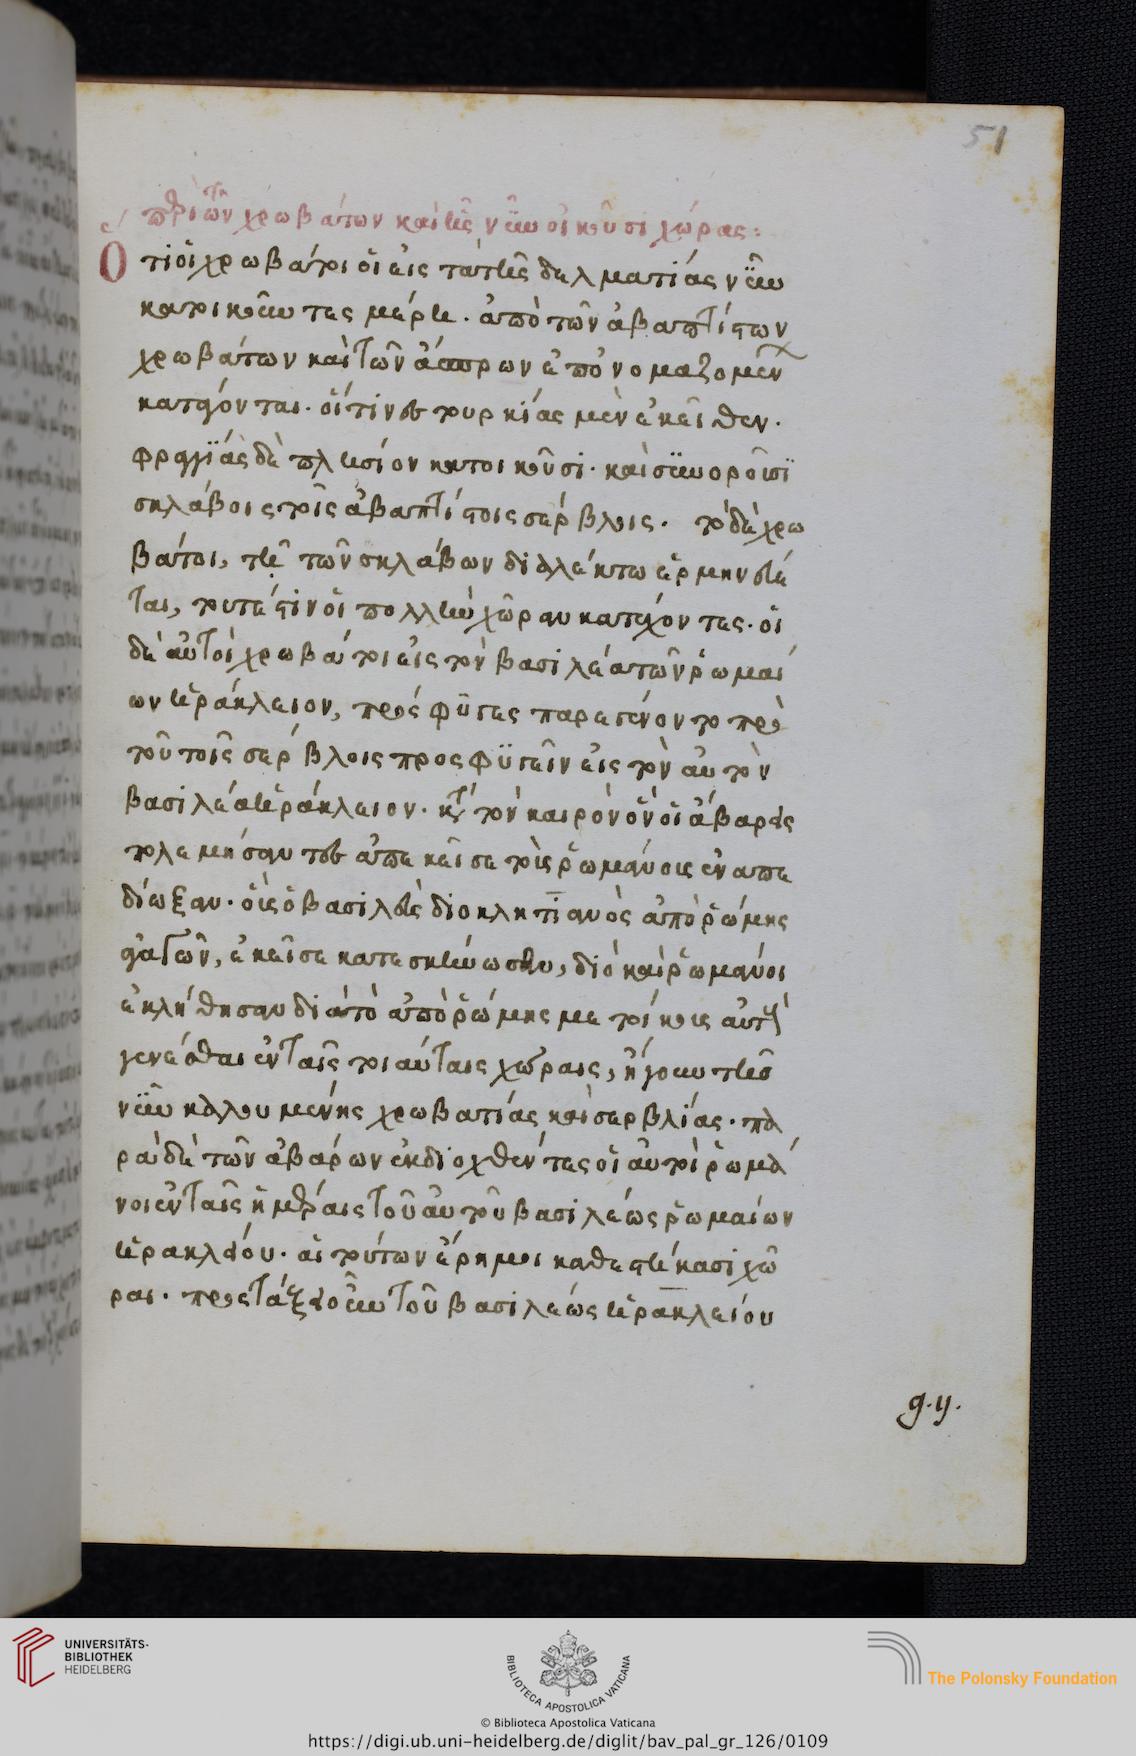 51
περὶ τῶν χρωβάτων καὶ ἧς νῦν οἰκοῦσι χώρας:
Ὅτι οἱ χρωβάτοι οἱ εἰς τὰ τῆς δελματίας νῦν
κατοικοῦντες μέρη. ἀπὸ τῶν ἀβαπτίστων
χρωβάτων καὶ τῶν ἄσπρων ἐπονομαζομένων
κατάγονται. οἵτινες τουρκίας μὲν ἐκεῖθεν.
φραγγίας δὲ πλησίον κατοικοῦσι. καὶ συνοροῦσι
σκλάβοις τοῖς ἀβαπτίστοις σέρβλοις. τὸ δὲ χρω
βάτοι, τῇ τῶν σκλάβων διαλέκτω ἑρμηνεύε
ται, τουτέστιν οἱ πολλὴν χώραν κατέχοντες. οἱ
δὲ αὐτοὶ χρωβάτοι εἰς τὸν βασιλέα τῶν ῥωμαί
ων ἡράκλειον, πρόσφυγες παρεγένοντο πρὸ
τοῦ τοὺς σέρβλοις προσφυγεῖν εἰς τὸν αὐτὸν
βασιλέα ἡράκλειον. κατὰ τὸν καιρὸν ὃν οἱ ἀβάρεις
πολεμήσαντες ἀπ' ἐκεῖσε τοὺς ῥωμάνοις ἐναπε
δίωξαν. οἷς ὁ βασιλεὺς διοκλητιανὸς ἀπὸ ῥώμης
ἀγαγὼν, ἐκεῖσε κατεσκεύωσεν, διὸ καὶ ῥωμάνοι
ἐκλήθησαν διὰ τὸ ἀπὸ ῥώμης μετοίκοις αὐτοὺς
γενέσθαι ἐν ταῖς τοιαύταις χώραις, ἤγουν τῆς
νῦν καλουμένης χρωβατίας καὶ σερβλίας. πα
ρὰ δὲ τῶν ἀβάρων ἐκδιοχθέντες οἱ αὐτοὶ ῥωμά
νοι ἐν ταῖς ἡμέραις τοῦ αὐτοῦ βασιλέως ῥωμαίων
ἡρακλείου. αἱ τούτων ἔρημοι καθεστήκασι χῶ
ραι. προστάξει οὖν τοῦ βασιλέως ἡρακλείου
g.y.
UNIVERSITÄTS-
BIBLIOTHEK
HEIDELBERG
BIBLIOTECA APOSTOLICA VATICANA
© Biblioteca Apostolica Vaticana
The Polonsky Foundation
https://digi.ub.uni-heidelberg.de/diglit/bav_pal_gr_126/0109